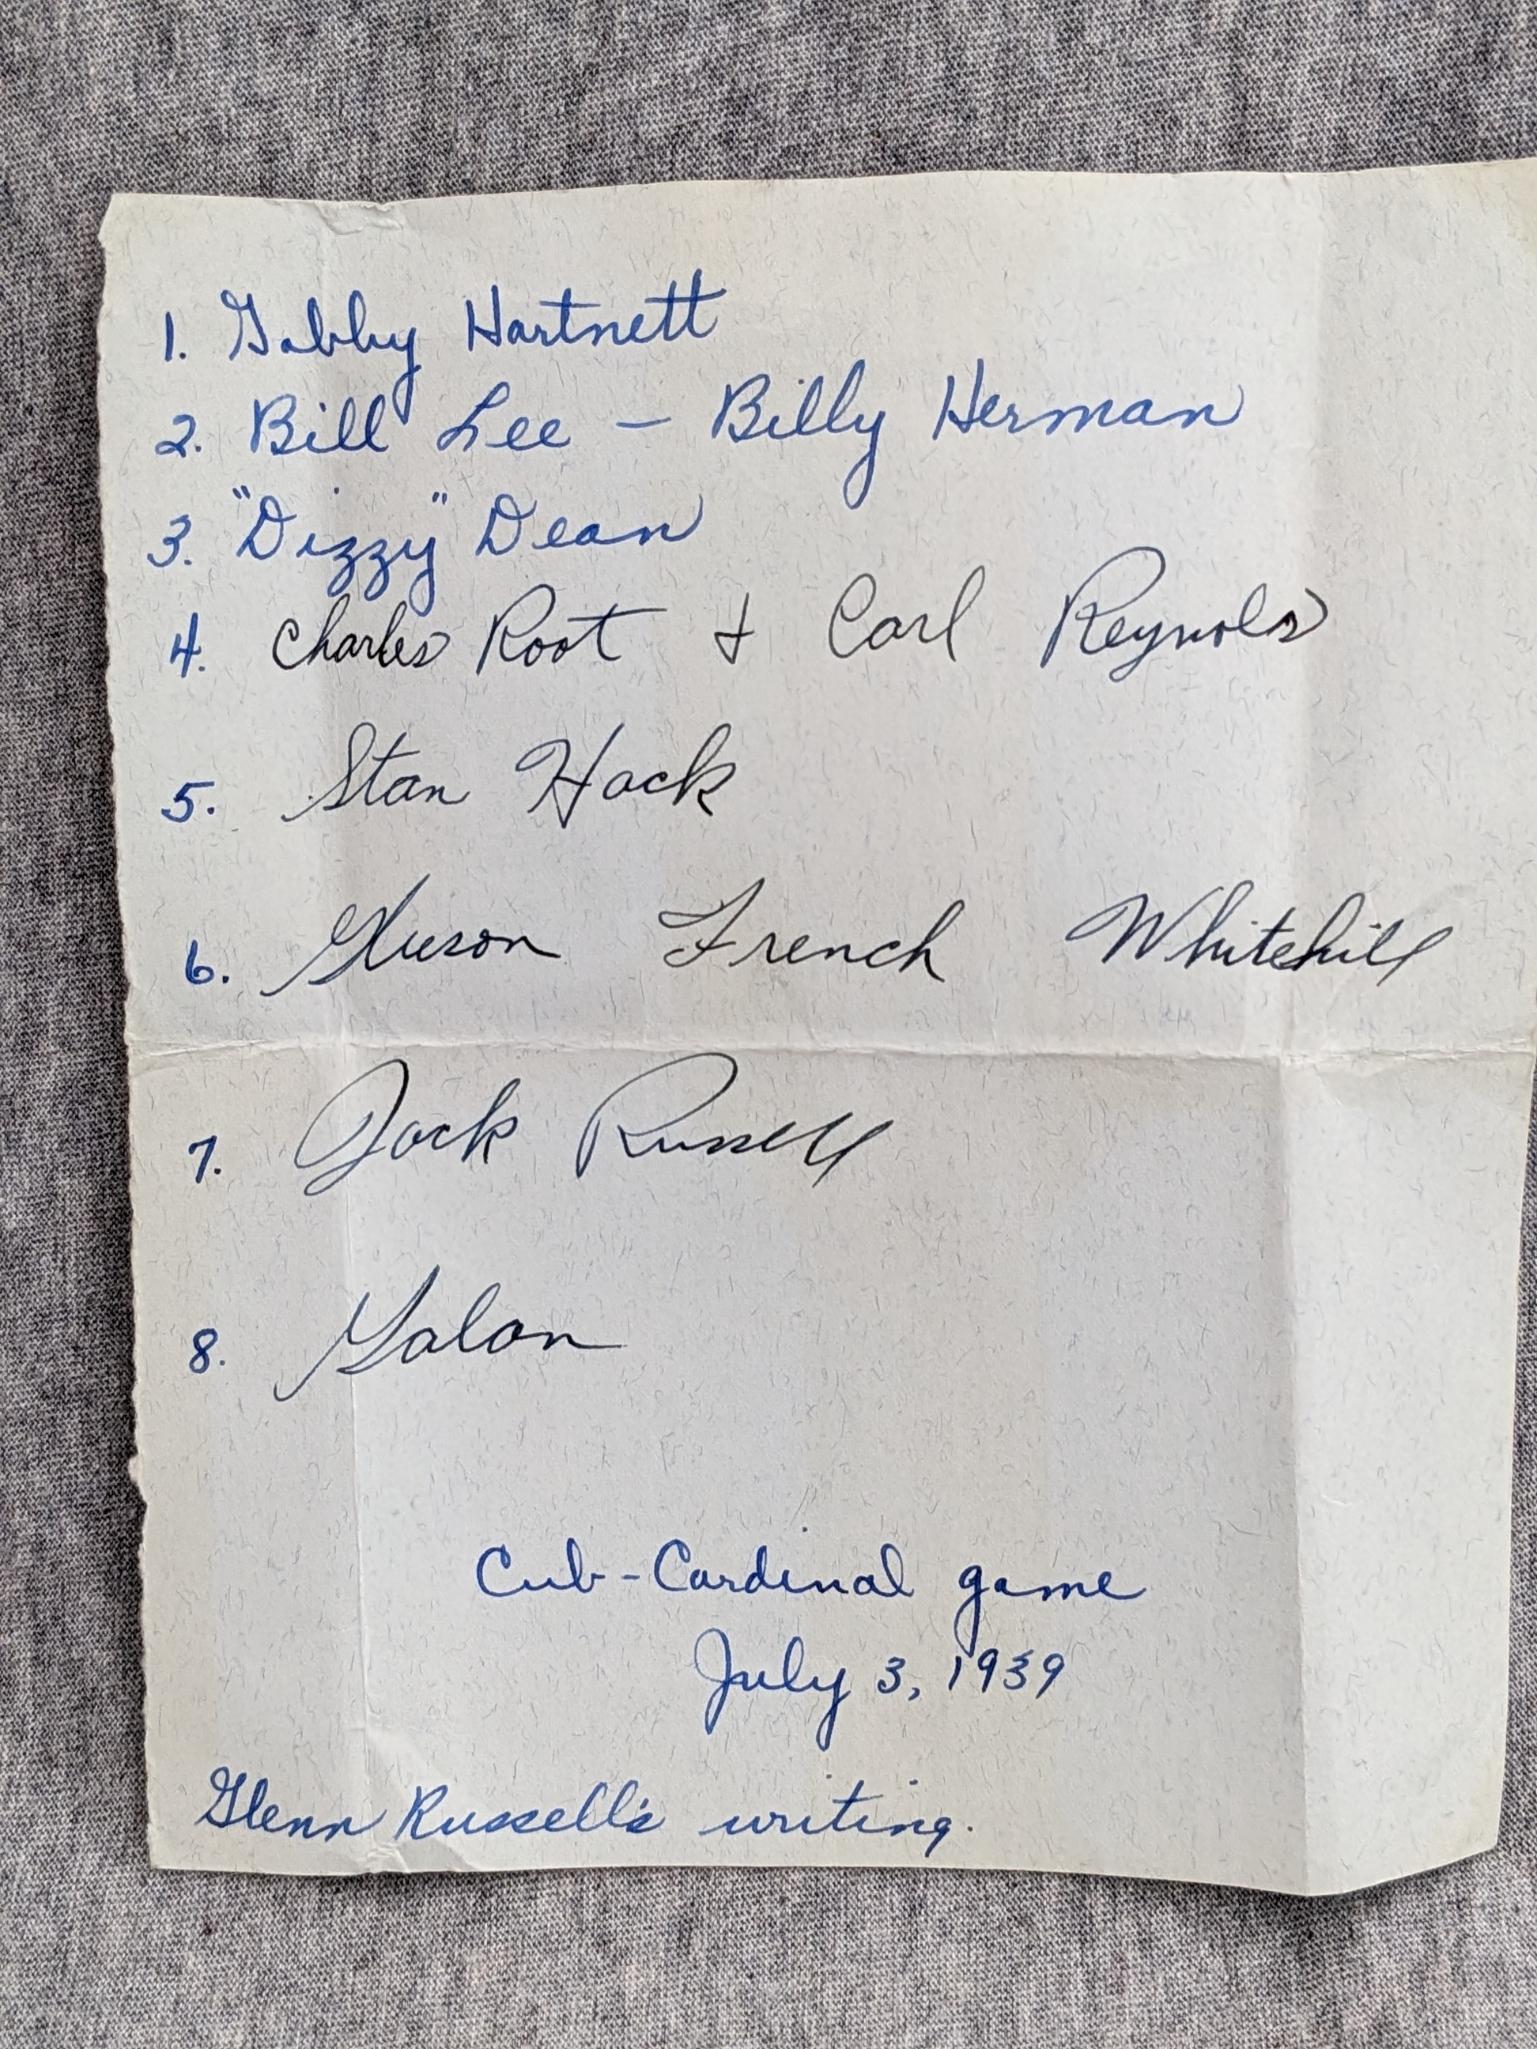 1. Gabby Hartnett
2. Bill Lee - Billy Herman
3. "Dizzy" Dean
4. Charles Root & Carl Reynolds
5. Stan Hack
6. Gleeson French Whitehill
7. Jack Russell
8. Galan
Cub-Cardinal game
July 3, 1939
Glenn Russell's writing.